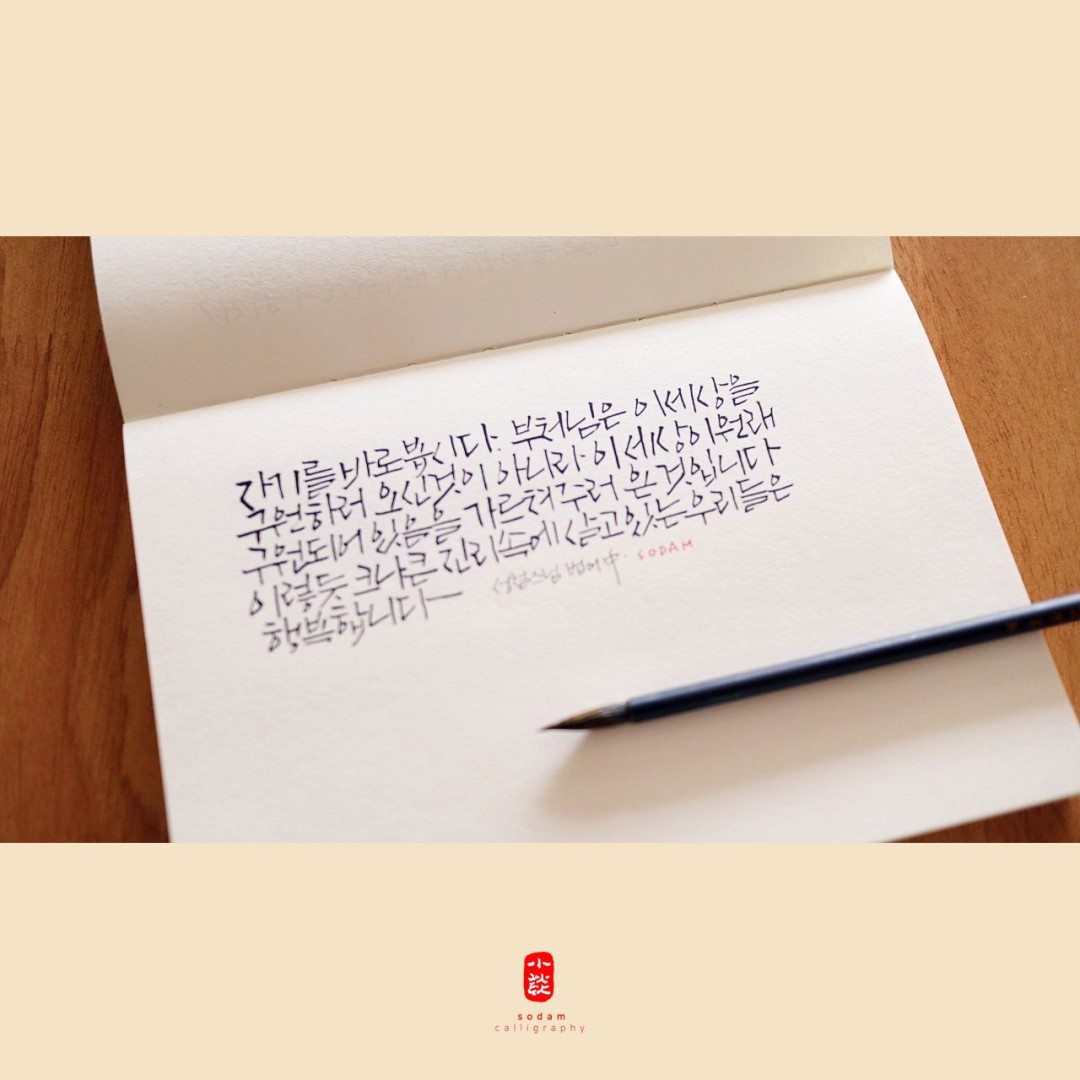 자기를 바로봅시다. 부처님은 이세상을
구원하러 오신것이 아니라 이세상이 원래
구원되어 있음을 가르쳐주러 온것입니다
이렇듯 크나큰 진리속에 살고있는 우리들은
행복합니다
성철스님 법어中. SODAM
小談
sodam
calligraphy